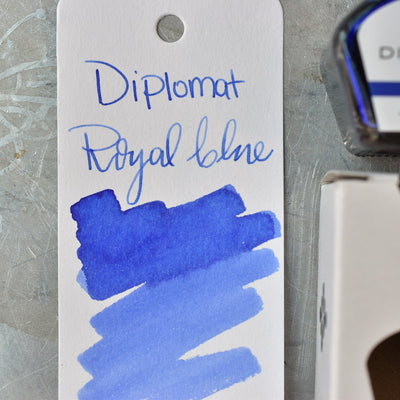 Diplomat
Royal blue